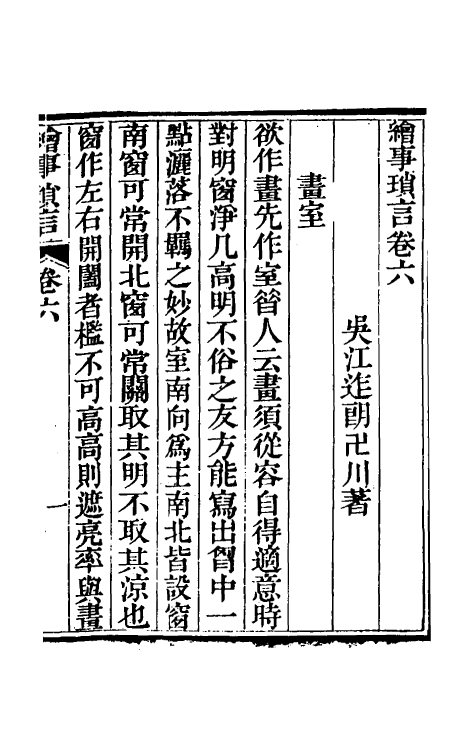 繪事瑣言卷六
吳江迮朗卍川著
畫室
欲作畫先作室昝人云畫須從容自得適意時
對明窗淨几高明不俗之友方能寫出胷中一
點灑落不羈之妙故室南向爲主南北皆設窗
南窗可常開北窗可常關取其明不取其涼也
窗作左右開闔者檻不可高高則遮亮率與畫
繪事瑣言
卷六
一